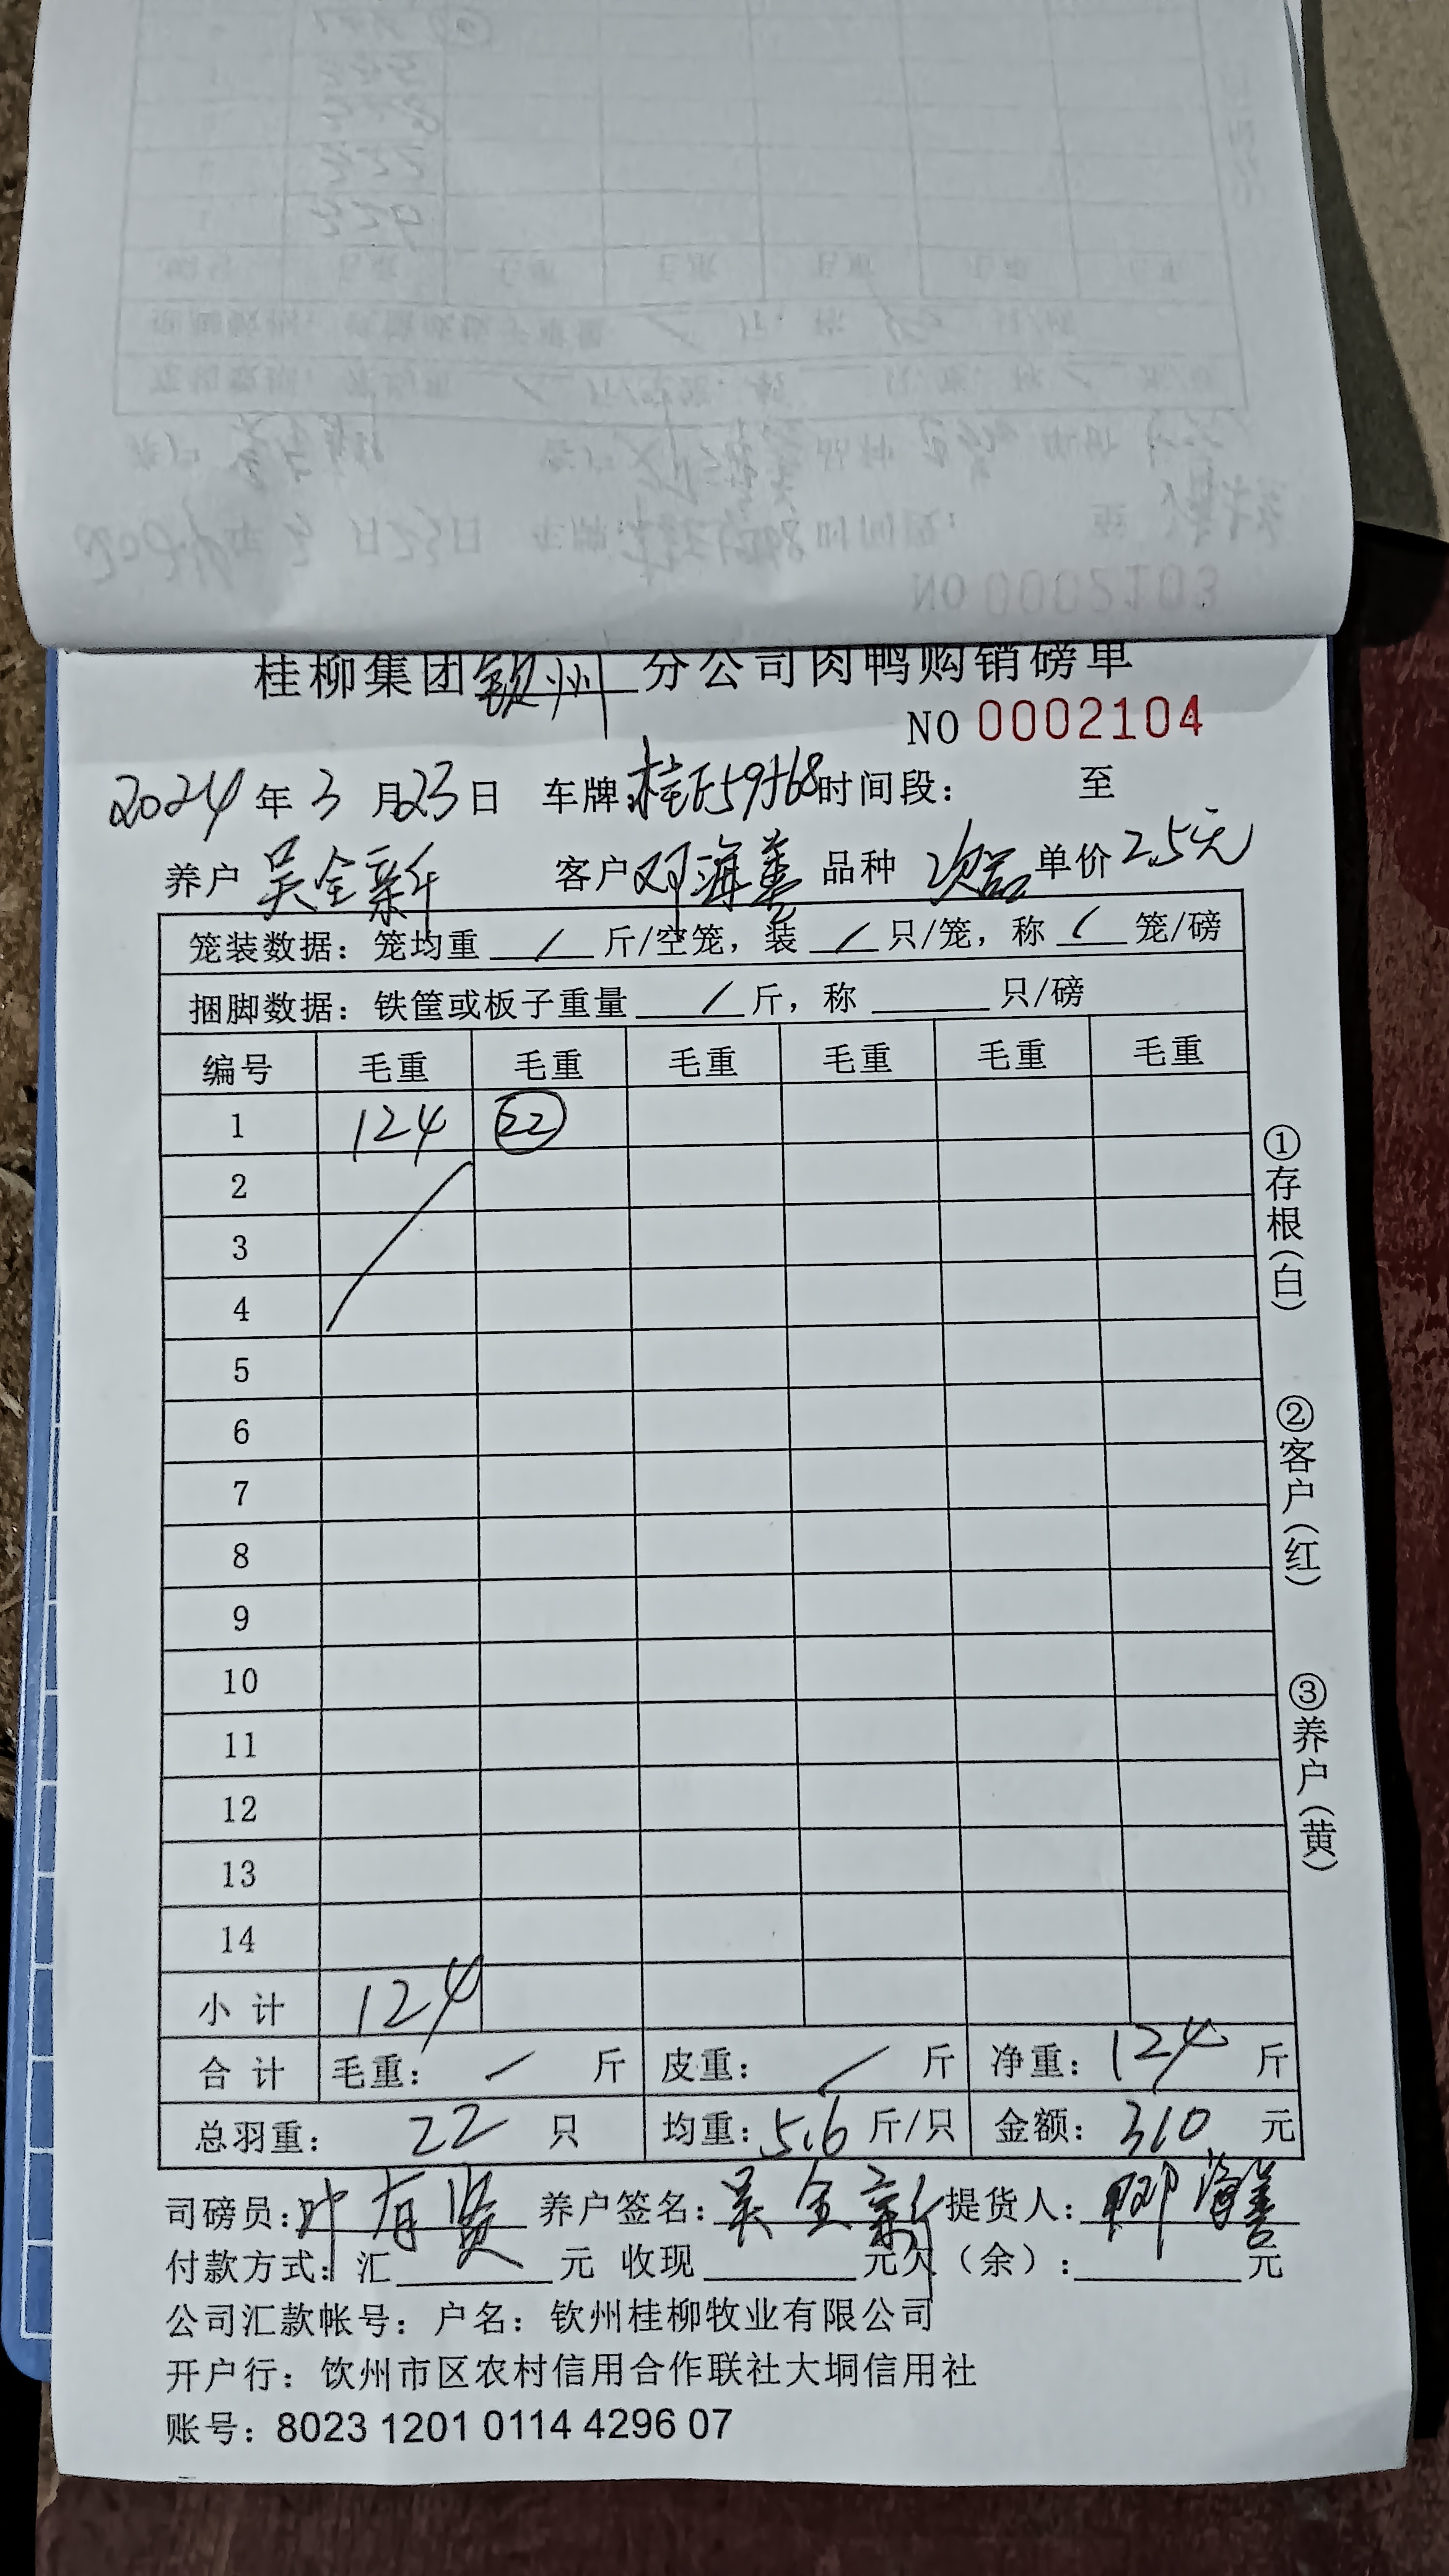 桂柳集团钦州分公司肉鸭购销磅单
NO 0002104
2024年3月23日 车牌: 时间段： 至
养户 吴全新 客户 邓海善 品种 次品 单价 2.5元
笼装数据：笼均重 / 斤/空笼，装 / 只/笼，称 / 笼/磅
捆脚数据：铁筐或板子重量 / 斤，称 只/磅
编号 毛重 毛重 毛重 毛重 毛重 毛重
1 124 22
2
3
4
5
6
7
8
9
10
11
12
13
14
小计 124
合计 毛重： / 斤 皮重： / 斤 净重：124 斤
总羽重： 22 只 均重：5.6 斤/只 金额：310 元
司磅员：叶有贤 养户签名：吴全新 提货人：邓海善
付款方式：汇 元 收现 元欠（余）： 元
公司汇款帐号：户名：钦州桂柳牧业有限公司
开户行：饮州市区农村信用合作联社大垌信用社
账号：8023 1201 0114 4296 07
①存根（白）
②客户（红）
③养户（黄）
NO 0002103